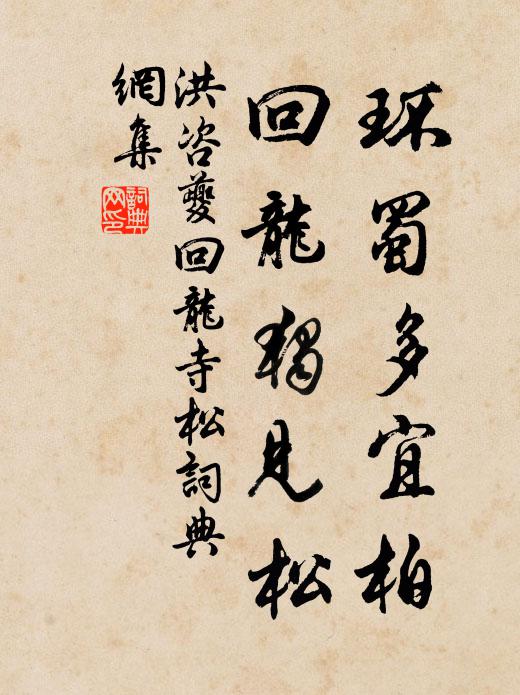 环蜀多宜柏
回龍獨見松
洪咨夔回龍寺松詞典
網集
詞典網印